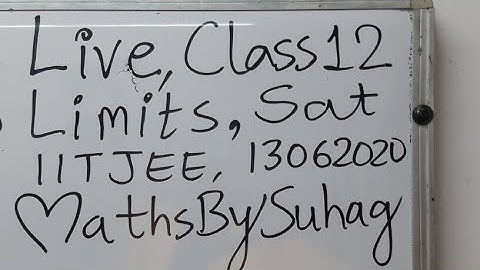 Live, Class 12
Limits, Sat
IITJEE, 13062020
MathsBySuhag